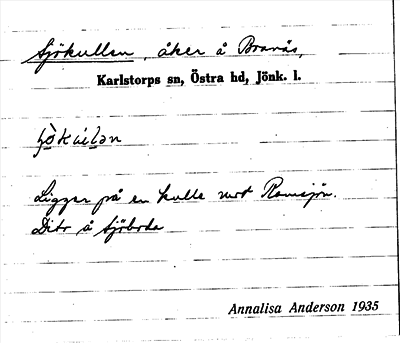 Sjökullen, åker å Bravås,
Karlstorps sn, Östra hd, Jönk. l.
Ligger på en kulle mot Ramsjön.
Dito å Sjöboda
Annalisa Anderson 1935